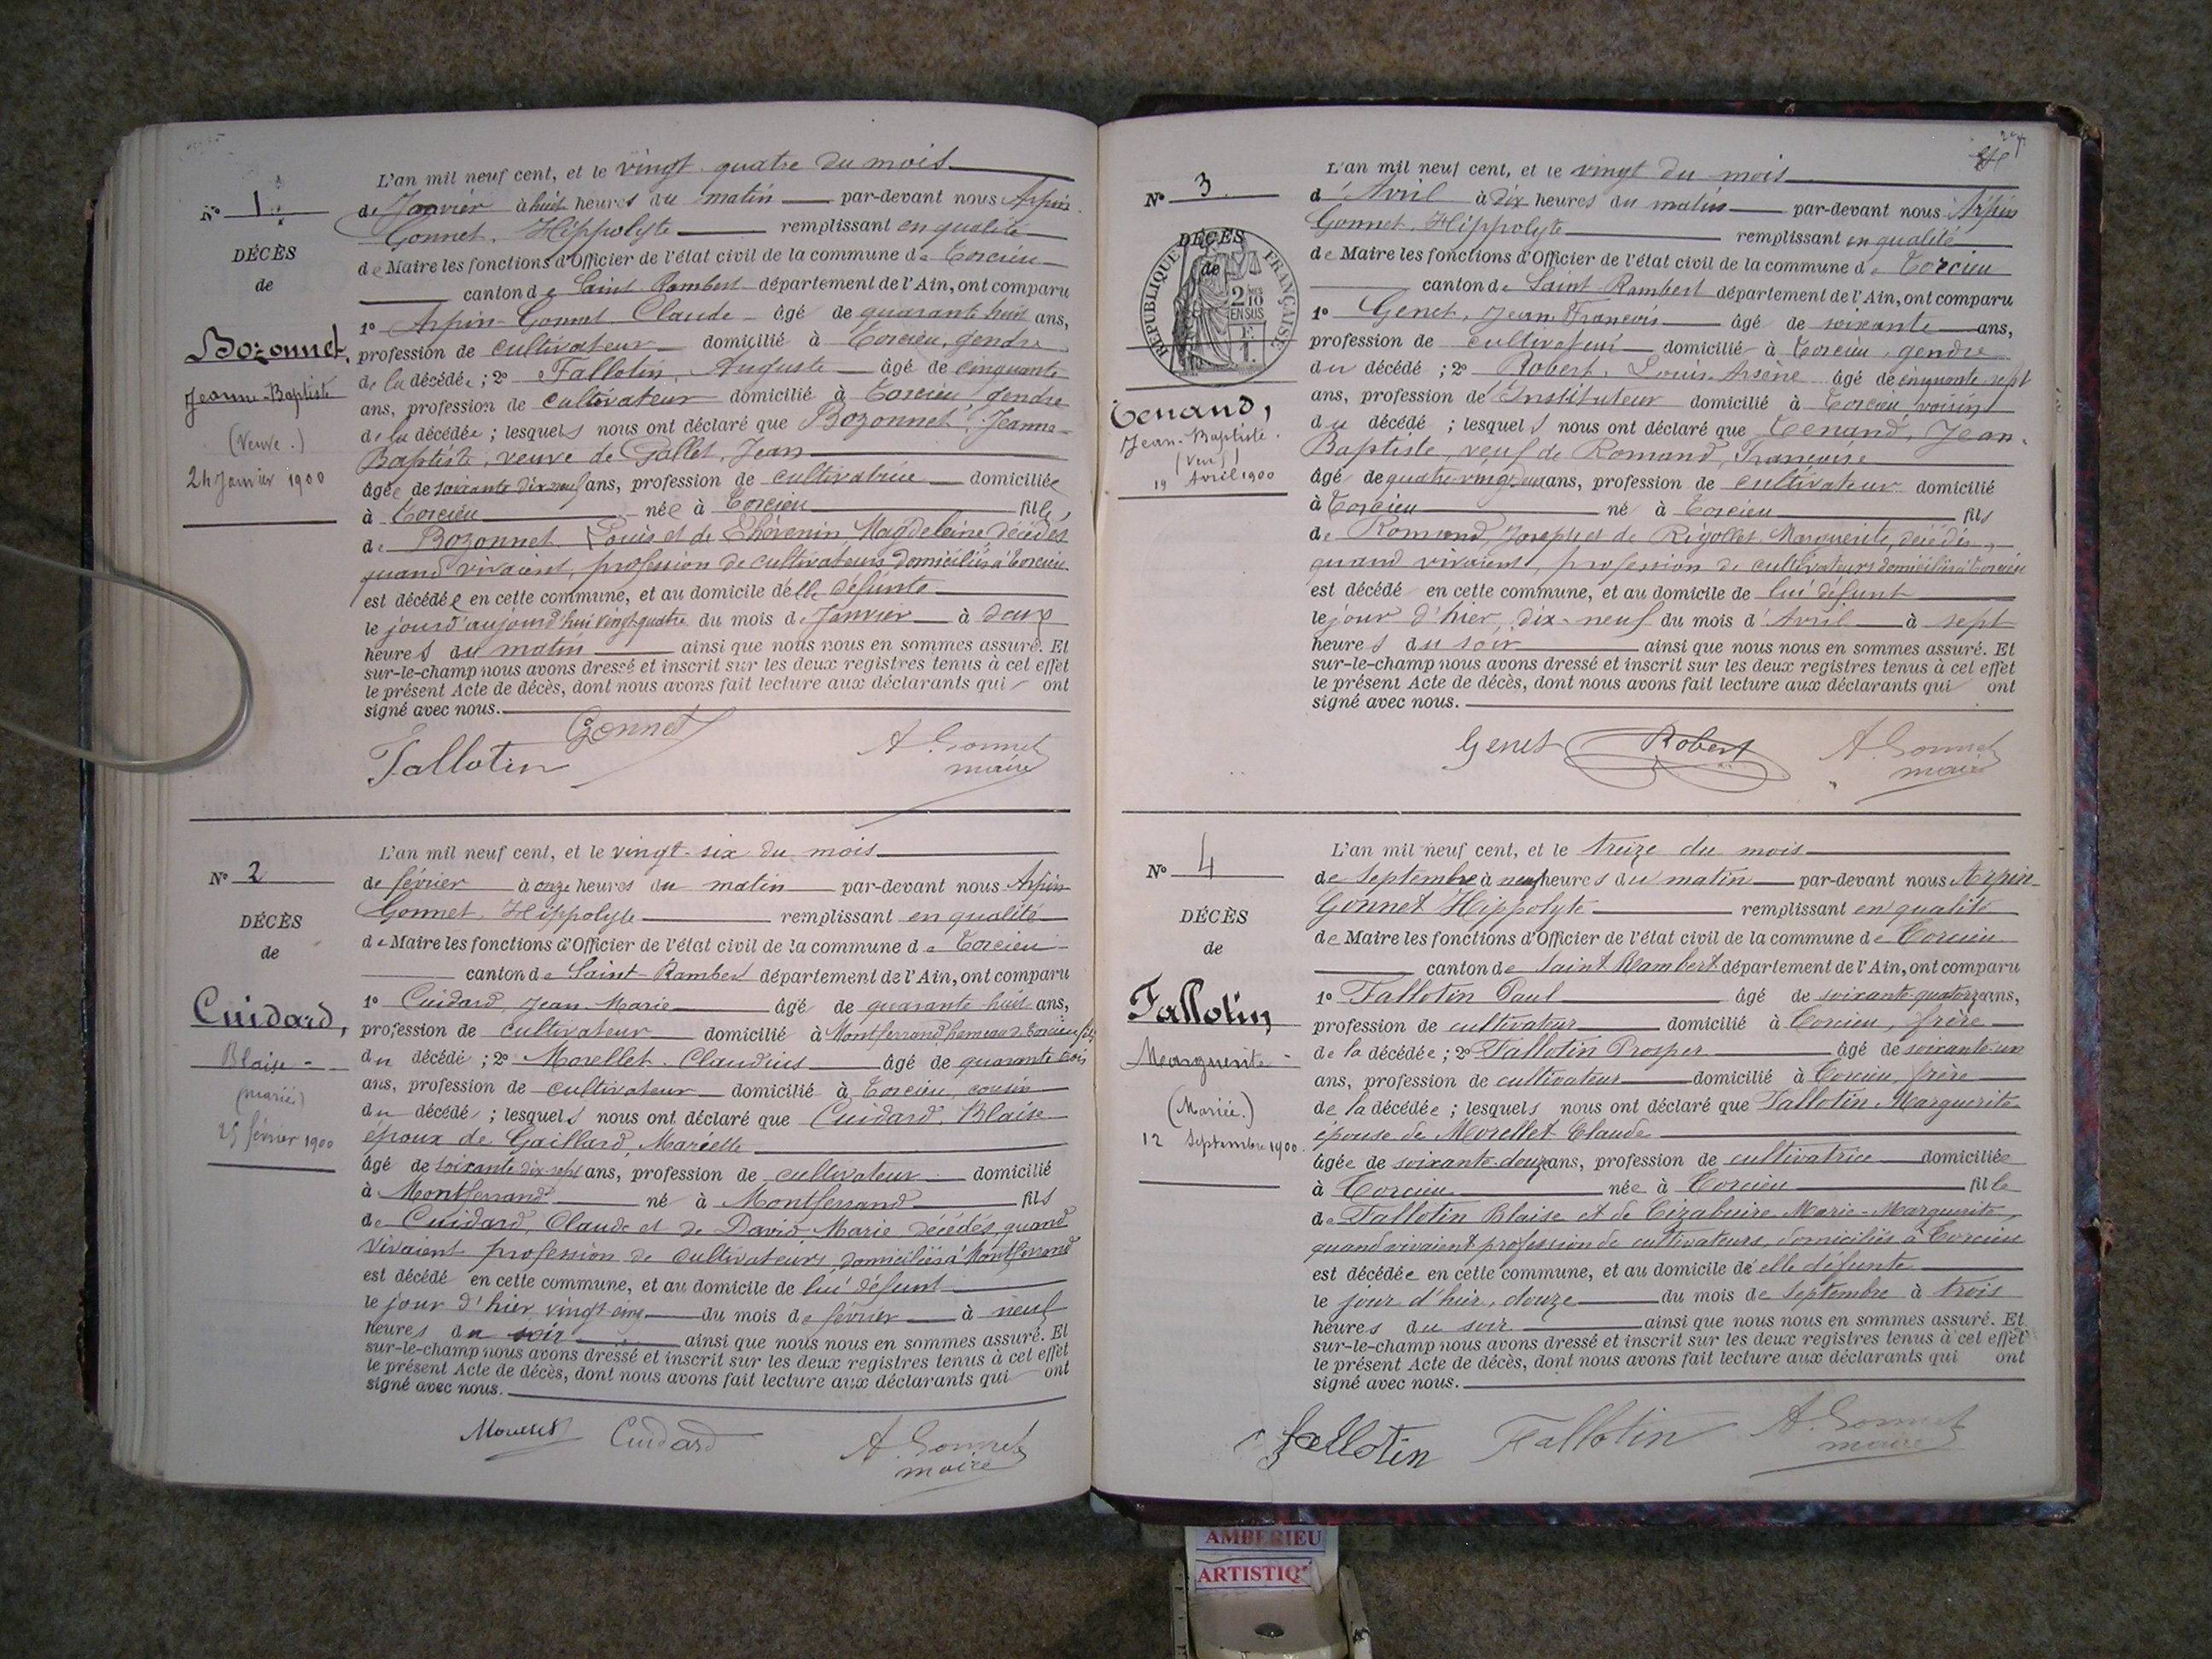 L'an mil neuf cent, et le vingt quatre du mois
N° 1
de Janvier à huit heures du matin par-devant nous Arpin
Gonnet, Hippolyte remplissant en qualité
DÉCÈS
de Maire les fonctions d'Officier de l'état civil de la commune de Torcieu
de
canton de Saint Rambert département de l'Ain, ont comparu
1° Arpin-Gonnet Claude âgé de quarante huit ans,
Bozonnet,
profession de cultivateur domicilié à Torcieu, gendre
de la décédée ; 2° Fallotin, Auguste âgé de cinquante
Jeanne-Baptiste
ans, profession de cultivateur domicilié à Torcieu gendre
(Veuve.)
de la décédée ; lesquels nous ont déclaré que Bozonnet, Jeanne-
Baptiste, veuve de Gallet, Jean
24 Janvier 1900
âgée de soixante dix neuf ans, profession de cultivatrice domiciliée
à Torcieu née à Torcieu fille
de Bozonnet Louis et de Thévenin, Magdeleine, décédés
quand vivaient, profession de cultivateurs domiciliés à Torcieu
est décédée en cette commune, et au domicile d'elle défunte
le jour d'aujourd'hui vingt quatre du mois de Janvier à deux
heures du matin ainsi que nous nous en sommes assuré. Et
sur-le-champ nous avons dressé et inscrit sur les deux registres tenus à cet effet
le présent Acte de décès, dont nous avons fait lecture aux déclarants qui ont
signé avec nous.
Gonnet
Fallotin
A. Gonnet
maire
L'an mil neuf cent, et le vingt-six du mois
N° 2
de février à onze heures du matin par-devant nous Arpin
Gonnet, Hippolyte remplissant en qualité
DÉCÈS
de Maire les fonctions d'Officier de l'état civil de la commune de Torcieu
de
canton de Saint-Rambert département de l'Ain, ont comparu
1° Cuidard, Jean-Marie âgé de quarante huit ans,
Cuidard,
profession de cultivateur domicilié à Montferrand hameau de Torcieu fils
du décédé ; 2° Morellet Claudius âgé de quarante trois
Blaise
ans, profession de cultivateur domicilié à Torcieu, cousin
(marié)
du décédé ; lesquels nous ont déclaré que Cuidard, Blaise
25 février 1900
époux de Gaillard, Mariette
âgé de soixante dix-sept ans, profession de cultivateur domicilié
à Montferrand né à Montferrand fils
de Cuidard, Claude et de David Marie décédés, quand
vivaient profession de cultivateurs domiciliés à Montferrand
est décédé en cette commune, et au domicile de lui défunt
le jour d'hier vingt cinq du mois de février à neuf
heures du soir ainsi que nous nous en sommes assuré. Et
sur-le-champ nous avons dressé et inscrit sur les deux registres tenus à cet effet
le présent Acte de décès, dont nous avons fait lecture aux déclarants qui ont
signé avec nous.
Cuidard
A. Gonnet
maire
L'an mil neuf cent, et le vingt du mois
N° 3
d'Avril à dix heures du matin par-devant nous Arpin
Gonnet, Hippolyte remplissant en qualité
DÉCÈS
de
RÉPUBLIQUE FRANÇAISE
2/10 EN SUS
de Maire les fonctions d'Officier de l'état civil de la commune de Torcieu
canton de Saint-Rambert département de l'Ain, ont comparu
1° Genet, Jean François âgé de soixante ans,
profession de cultivateur domicilié à Torcieu, gendre
du décédé ; 2° Robert, Louis-Arsène âgé de cinquante sept
Tenand,
ans, profession de Instituteur domicilié à Torcieu, voisin
Jean-Baptiste.
du décédé ; lesquels nous ont déclaré que Tenand, Jean-
(Veuf)
Baptiste, veuf de Romand, Françoise
19 Avril 1900
âgé de quatre-vingt deux ans, profession de cultivateur domicilié
à Torcieu né à Torcieu fils
de Romand, Joseph et de Rigollet Marguerite, décédés,
quand vivaient, profession de cultivateurs domiciliés à Torcieu
est décédé en cette commune, et au domicile de lui défunt
le jour d'hier, dix-neuf du mois d'Avril à sept
heures du soir ainsi que nous nous en sommes assuré. Et
sur-le-champ nous avons dressé et inscrit sur les deux registres tenus à cet effet
le présent Acte de décès, dont nous avons fait lecture aux déclarants qui ont
signé avec nous.
Genet Robert A. Gonnet
maire
L'an mil neuf cent, et le treize du mois
N° 4
de Septembre à neuf heures du matin par-devant nous Arpin-
Gonnet Hippolyte remplissant en qualité
DÉCÈS
de Maire les fonctions d'Officier de l'état civil de la commune de Torcieu
de
canton de Saint Rambert département de l'Ain, ont comparu
1° Fallotin Paul âgé de soixante-quatorze ans,
Fallotin,
profession de cultivateur domicilié à Torcieu, frère
de la décédée ; 2° Fallotin Prosper âgé de soixante-un
Marguerite
ans, profession de cultivateur domicilié à Torcieu, frère
(Mariée.)
de la décédée ; lesquels nous ont déclaré que Fallotin Marguerite
12 Septembre 1900.
épouse de Morellet Claude
âgée de soixante-douze ans, profession de cultivatrice domiciliée
à Torcieu née à Torcieu fille
de Fallotin Blaise et de Cizabuire Marie-Marguerite,
quand vivaient profession de cultivateurs, domiciliés à Torcieu
est décédée en cette commune, et au domicile de elle défunte
le jour d'hier, douze du mois de Septembre à trois
heures du soir ainsi que nous nous en sommes assuré. Et
sur-le-champ nous avons dressé et inscrit sur les deux registres tenus à cet effet
le présent Acte de décès, dont nous avons fait lecture aux déclarants qui ont
signé avec nous.
Fallotin Fallotin A. Gonnet
maire
AMBERIEU
ARTISTIQ